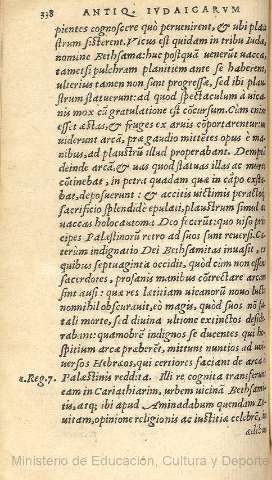 338 ANTIQ. IVDAICARVM
pientes cognoscere quò peruenirent, & ubi plau
strum sisterent. Vicus est quidam in tribu Iuda,
nomine Bethsama: huc postquā venerūt vaccæ,
tametsi pulchram planitiem ante se haberent,
ulterius tamen non sunt progressæ, sed ibi plau
strum statuerunt: ad quod spectaculum a uica
nis mox cū gratulatione est cōcursum. Cùm enim
esset æstas, & fruges ex aruis cōportarentur, ut
uiderunt arcā, præ gaudio mittētes opus è ma
nibus, ad plaustrū illud properabant. Demptā
deinde arcā, & uas quod statuas illas ac mures
cōtinebat, in petra quadam quæ in cāpo exista
bat, deposuerunt: & accitis uictimis peractoq́;
sacrificio splendidè epulati, plaustrum simul et
uaccas holocaustoma Deo fecerūt: quo uiso prin
cipes Palæstinorū retro ad suos sunt reuersi. Cæ
terùm indignatio Dei Bethsamitas inuasit, ex
quibus septuaginta occidit, quòd cùm non essent
sacerdotes, profanis manibus cōtrectare arcam
sint ausi: quæ res lætitiam uicanorū nouo luctu
nonnihil obscurauit, eò magis, quòd suos nō fa
tali morte, sed diuina ultione extinctos deside
rabant: quamobrē indignos se ducentes qui ho
spitium arcæ præberēt, mittunt nuntios ad uni
uersos Hebræos, qui certiores faciant de arca à
2. Reg. 7. Palæstinis reddita. Illi re cognita transferunt
eam in Cariathiarim, urbem uicinā Bethsami
tis, atq; ibi apud Aminadabum quendam Le
uitam, opinione religionis ac iustitiæ celebrē, in
ædibus
Ministerio de Educación, Cultura y Deporte